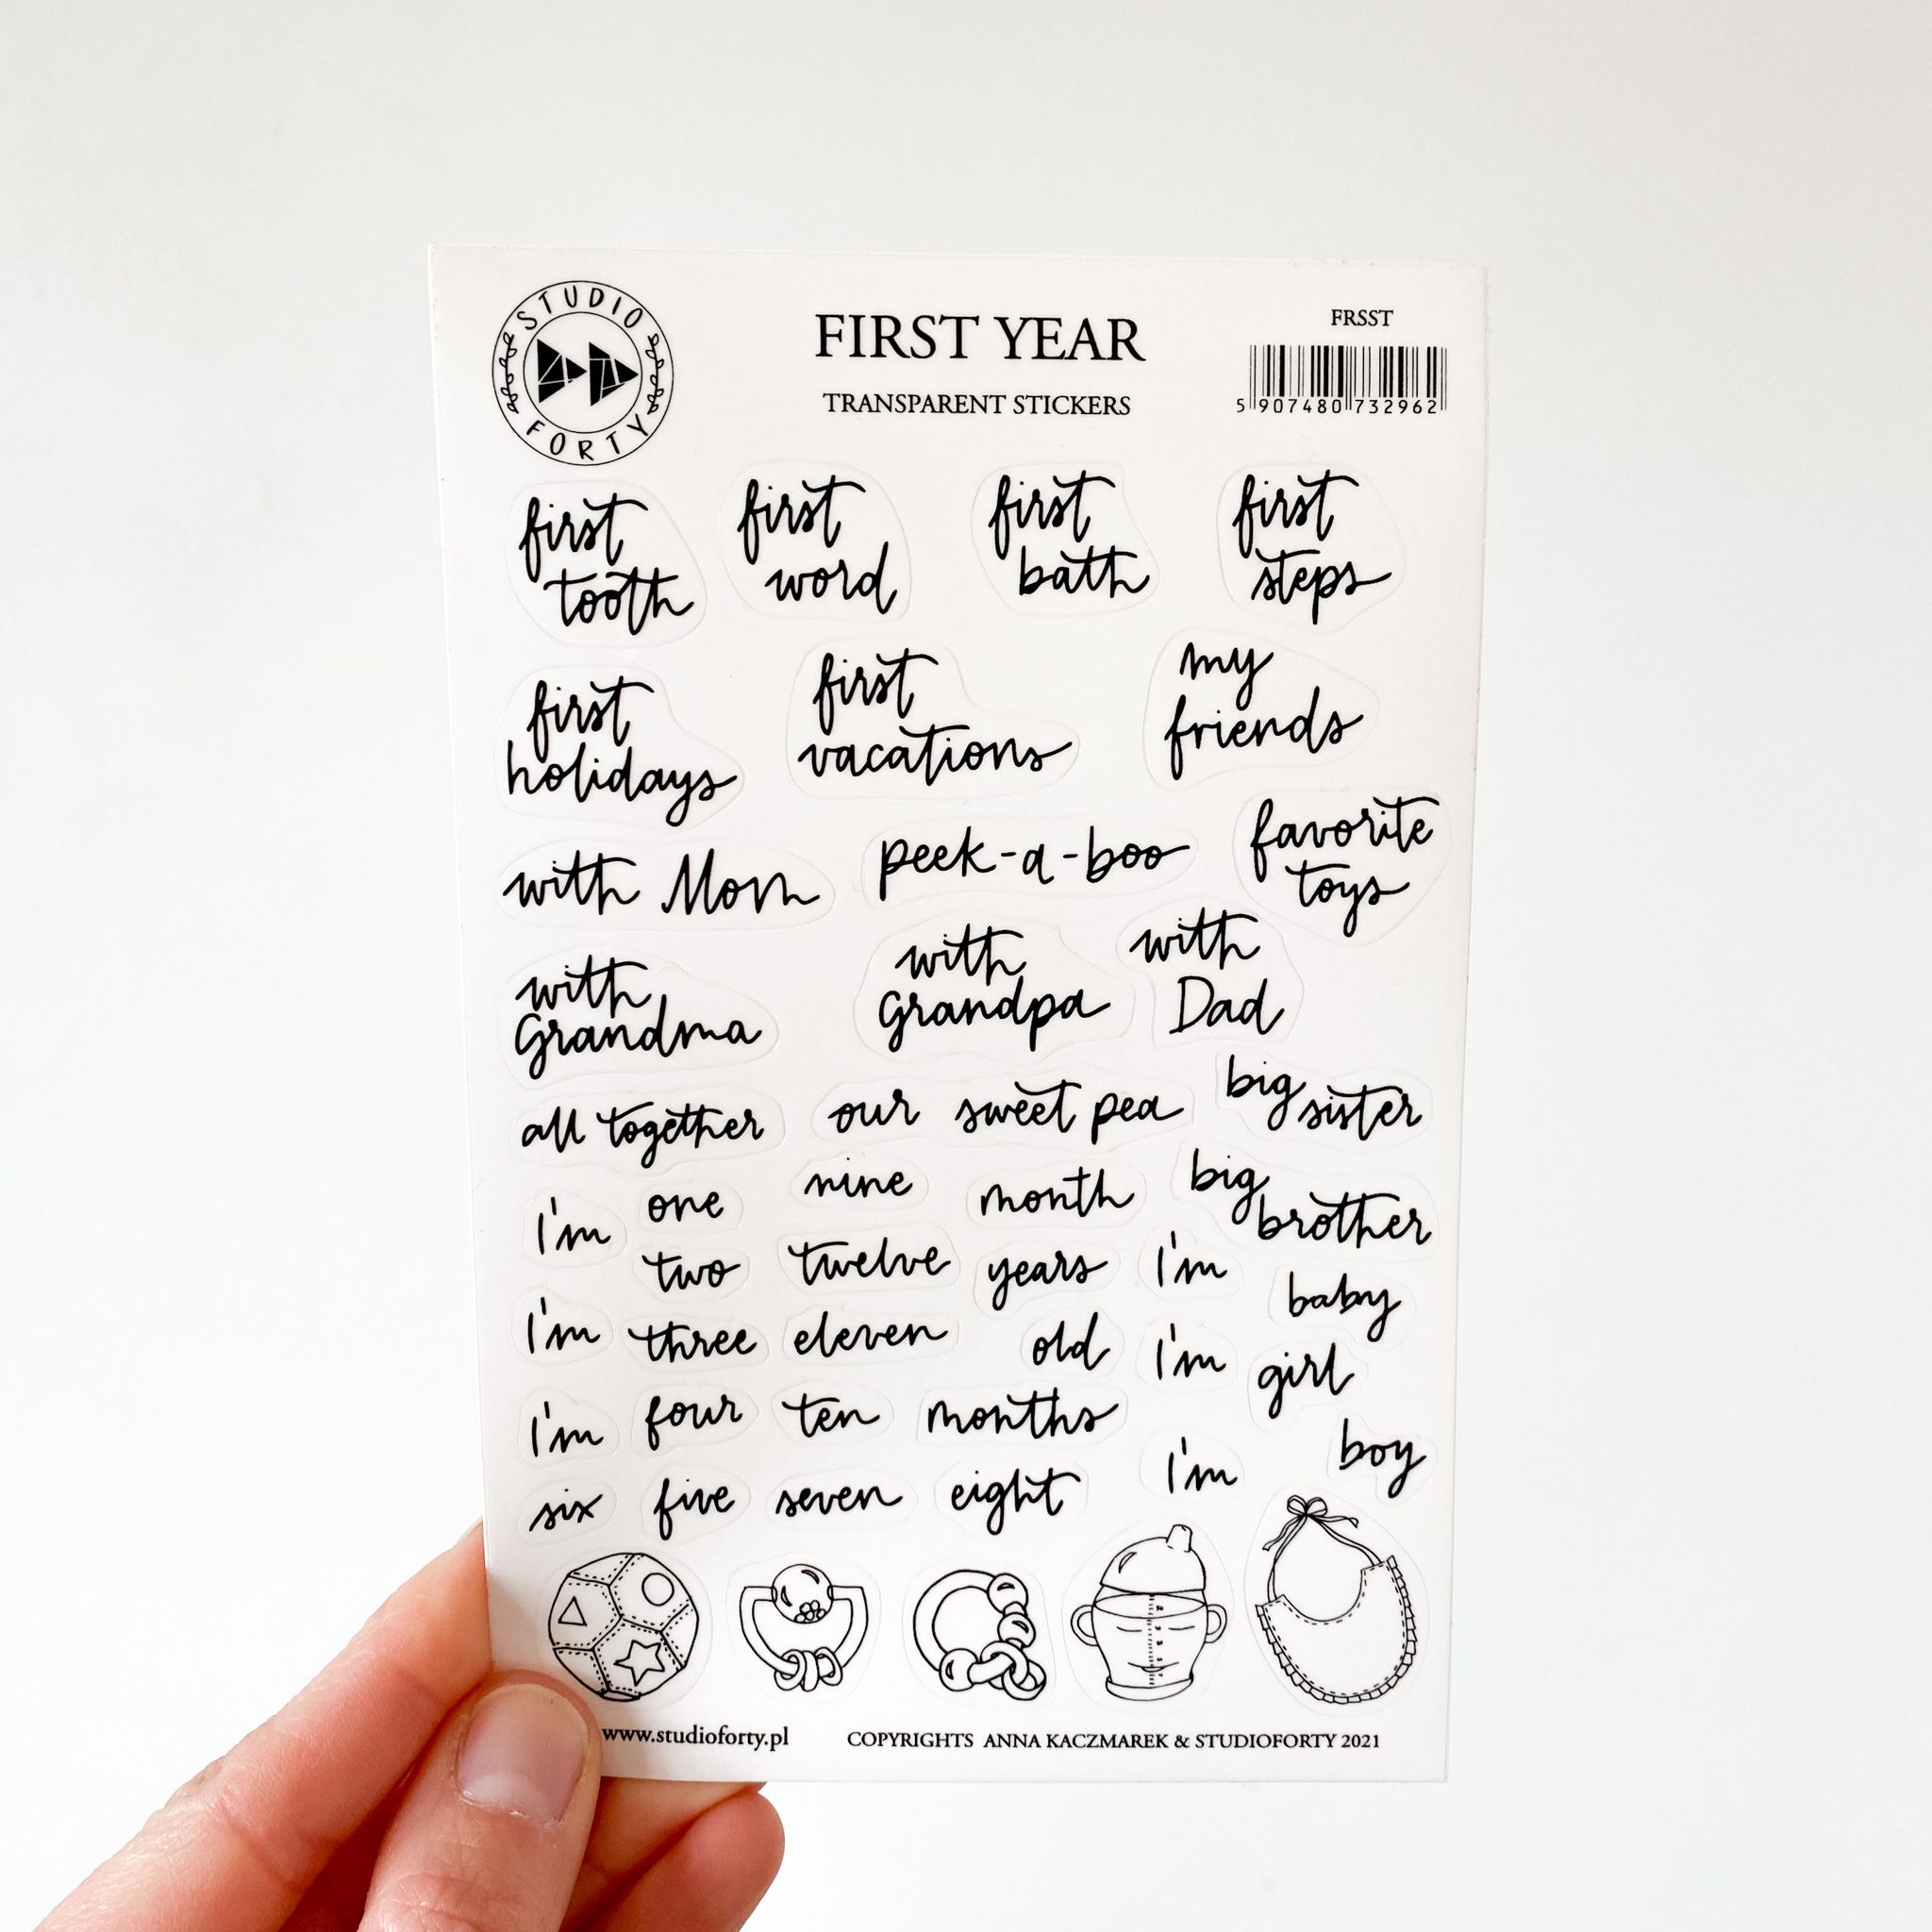 STUDIO
FORTY
FIRST YEAR
TRANSPARENT STICKERS
FRSST
5 907480 732962
first
tooth
first
word
first
bath
first
steps
first
holidays
first
vacations
my
friends
with Mom
peek-a-boo
favorite
toys
with
Grandma
with
Grandpa
with
Dad
all together
our sweet pea
big sister
I'm
one
nine
month
big
brother
two
twelve
years
I'm
baby
I'm
three
eleven
old
I'm
girl
I'm
four
ten
months
I'm
boy
six
five
seven
eight
www.studioforty.pl
COPYRIGHTS ANNA KACZMAREK & STUDIOFORTY 2021